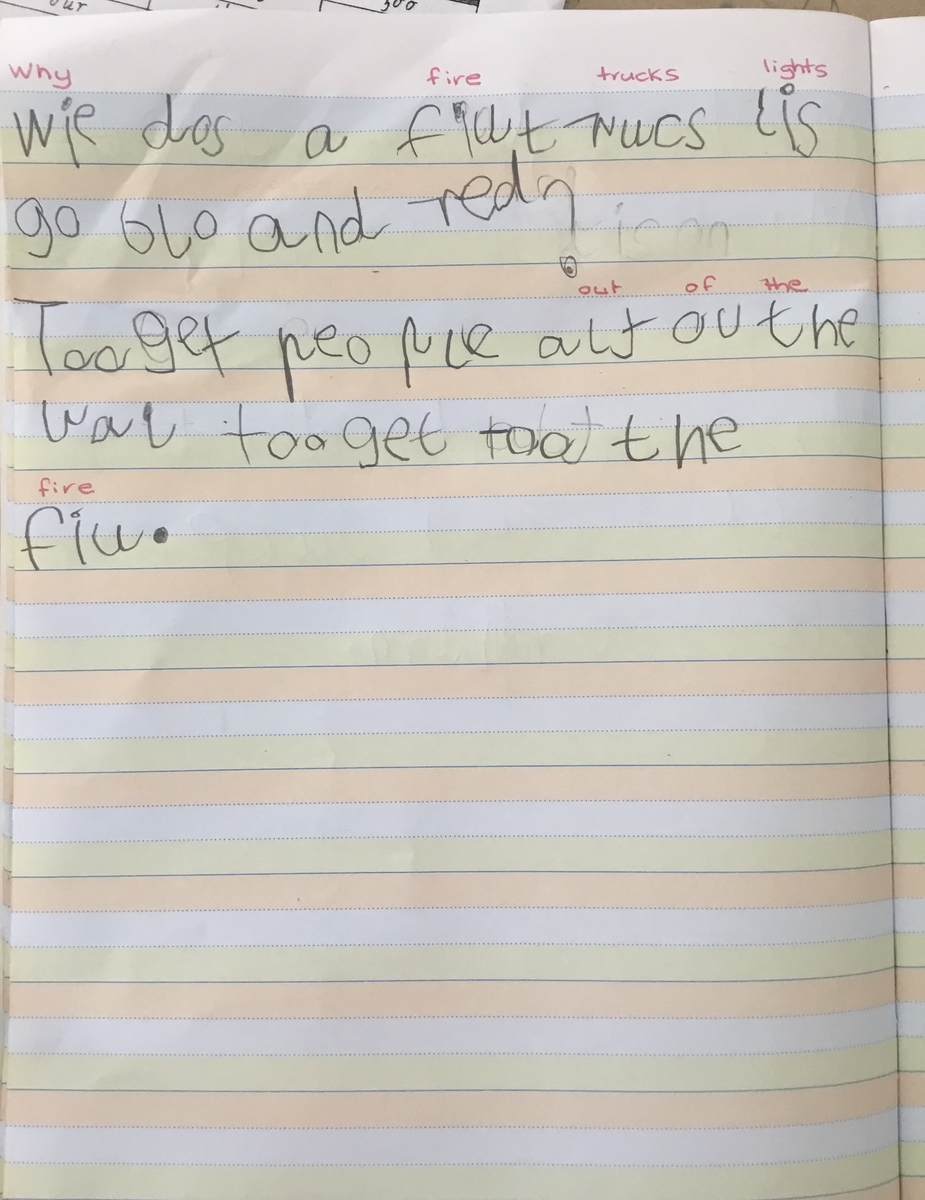 our 300
Why fire trucks lights
wie dos a fiut Trucs lis
go blo and red?
out of the
Too get people alt ou the
wai too get too the
fire
fiu.